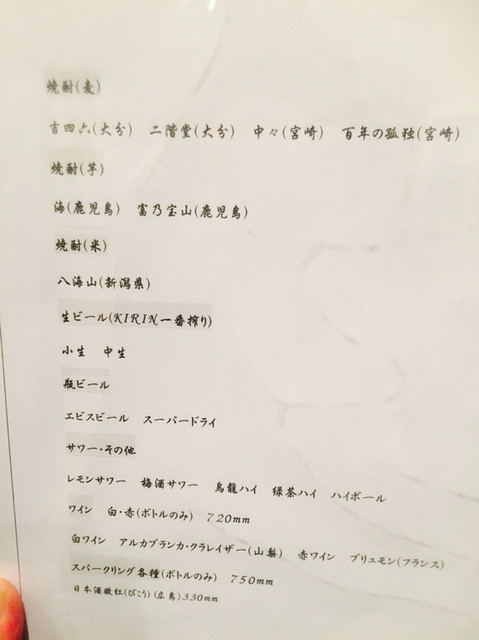 焼酎(麦)
吉四六(大分) 二階堂(大分) 中々(宮崎) 百年の孤独(宮崎)
焼酎(芋)
海(鹿児島) 富乃宝山(鹿児島)
焼酎(米)
八海山(新潟県)
生ビール(KIRIN一番搾り)
小生 中生
瓶ビール
エビスビール スーパードライ
サワー・その他
レモンサワー 梅酒サワー 烏龍ハイ 緑茶ハイ ハイボール
ワイン 白・赤(ボトルのみ) 720mm
白ワイン アルカブランカ・クラレイザー(山梨) 赤ワイン ブリュモン(フランス)
スパークリング各種(ボトルのみ) 750mm
日本酒微紅(びこう)(広島)330mm